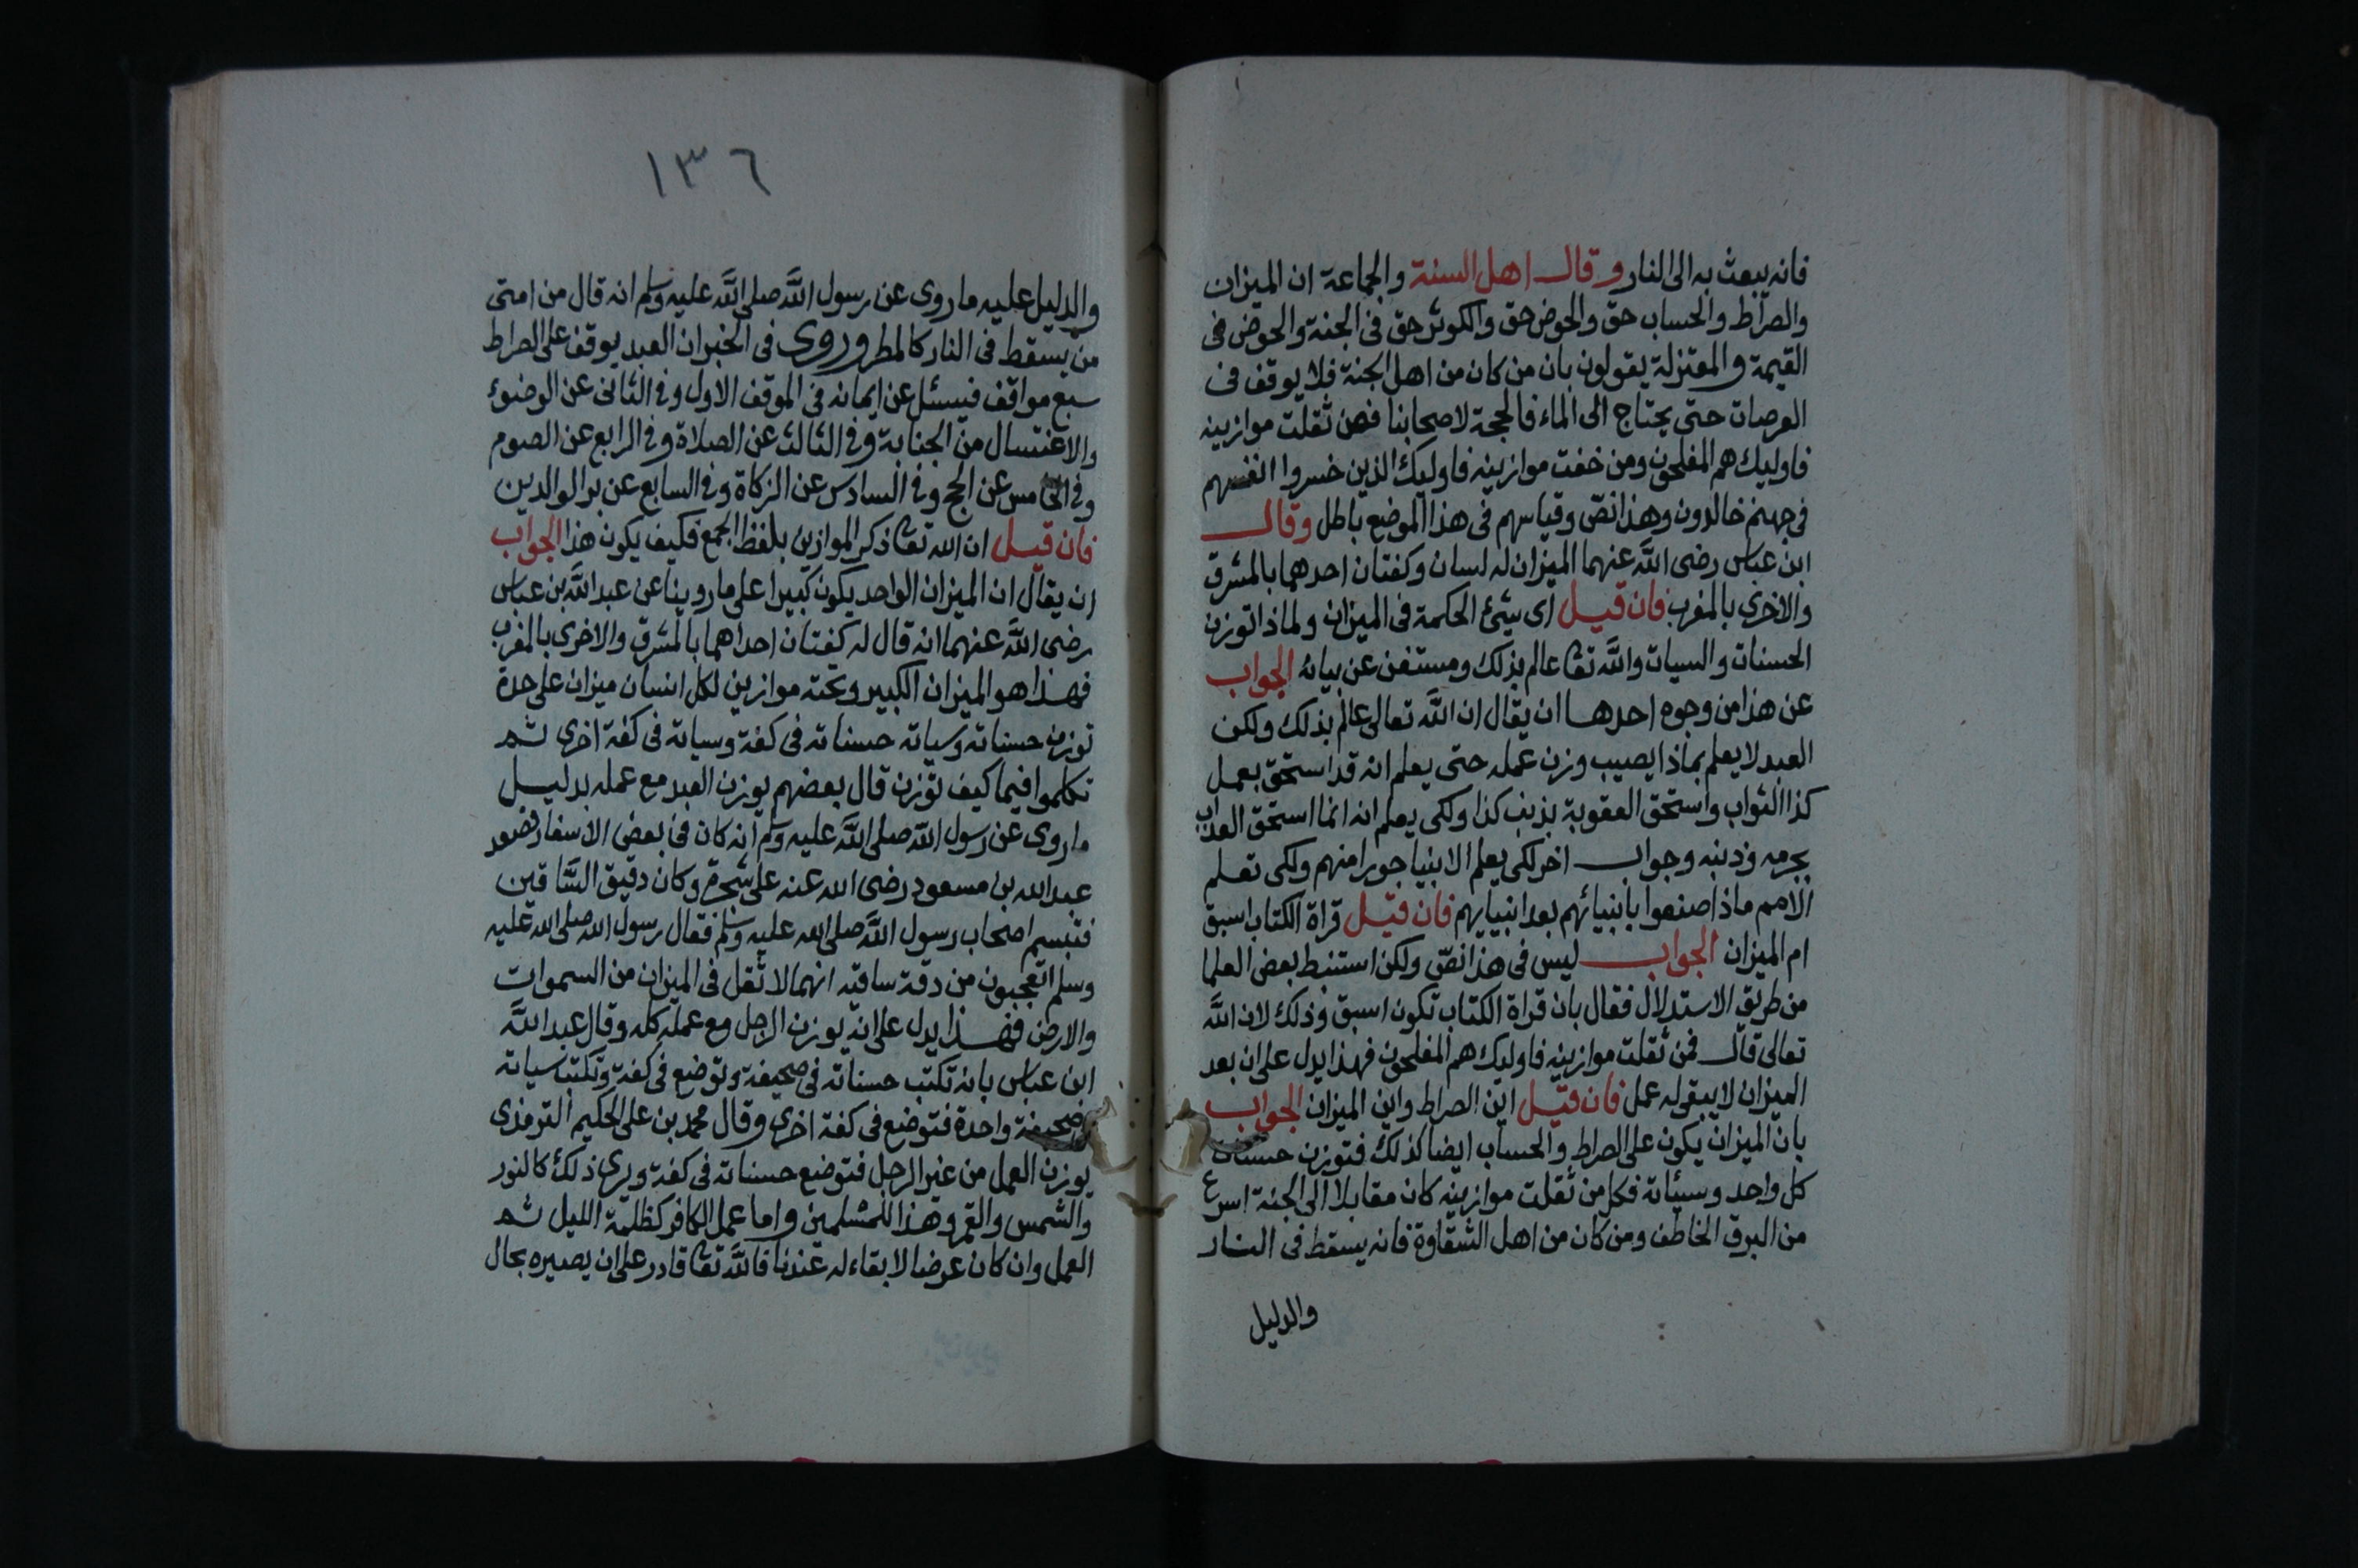 فانه يبعث به الى النار وقال اهل السنة والجماعة ان الميزان
والصراط والحساب حق والحوض حق والكوثر حق فى الجنة والحوض فى
القيمة والمعتزلة يقولون بان من كان من اهل الجنة فلا يوقف فى
العرصات حتى يحتاج الى الماء فالحجة لاصحابنا فمن ثقلت موازينه
فاوليك هم المفلحون ومن خفت موازينه فاوليك الذين خسروا انفسهم
فى جهنم خالدون وهذا نصّ وقياسهم فى هذا الموضع باطل وقال
ابن عباس رضى الله عنهما الميزان له لسان وكفتان احدهما بالمشرق
والاخرى بالمغرب فان قيل اى شئ الحكمة فى الميزان ولماذا توزن
الحسنات والسيات والله تعا عالم بذلك ومستغن عن بيانه الجواب
عن هذا من وجوه احدها ان يقال ان الله تعالى عالم بذلك ولكن
العبد لا يعلم بماذا يصيب وزن عمله حتى يعلم انه قد استحق بعمل
كذا الثواب واستحق العقوبة بذنب كذا ولكى يعلم انه انما استحق العذاب
بجرمه وذنبه وجواب اخر لكى يعلم الانبيا جورا منهم ولكى تعلم
الامم ماذا صنعوا بانبيائهم بعد انبيايهم فان قيل قراة الكتاب اسبق
ام الميزان الجواب ليس فى هذا نصّ ولكن استنبط بعض العلما
من طريق الاستدلال فقال بان قراة الكتاب تكون اسبق وذلك لان الله
تعالى قال فمن ثقلت موازينه فاوليك هم المفلحون فهذا يدل على ان بعد
الميزان لا يبقى له عمل فان قيل اين الصراط واين الميزان الجواب
بان الميزان يكون على الصراط والحساب ايضا كذلك فتوزن حسنات
كل واحد وسيئاته فكل من ثقلت موازينه كان مقابلا الى الجنة اسرع
من البرق الخاطف ومن كان من اهل الشقاوة فانه يسقط فى النار
والدليل
١٣٦
والدليل عليه ما روى عن رسول الله صلى الله عليه وسلم انه قال من امتى
من يسقط فى النار كالمطر وروى فى الخبر ان العبد يوقف على الصراط
سبع مواقف فيسئل عن ايمانه فى الموقف الاول وفى الثانى عن الوضوء
والاغتسال من الجنابة وفى الثالث عن الصلاة وفى الرابع عن الصوم
وفى الخامس عن الحج وفى السادس عن الزكاة وفى السابع عن بر الوالدين
فان قيل ان الله تعا ذكر الموازين بلفظ الجمع فكيف يكون هذا الجواب
ان يقال ان الميزان الواحد يكون كبيرا على ما روينا عن عبد الله بن عباس
رضى الله عنهما انه قال له كفتان احداهما بالمشرق والاخرى بالمغرب
فهذا هو الميزان الكبير وتحته موازين لكل انسان ميزان على حدة
توزن حسناته وسياته حسناته فى كفة وسياته فى كفة اخرى ثم
تكلموا فيما كيف توزن قال بعضهم يوزن العبد مع عمله بدليل
ما روى عن رسول الله صلى الله عليه وسلم انه كان فى بعض الاسفار فصعد
عبد الله بن مسعود رضى الله عنه على شجرة وكان دقيق الساقين
فتبسم اصحاب رسول الله صلى الله عليه وسلم فقال رسول الله صلى الله عليه
وسلم اتعجبون من دقة ساقيه انهما لاثقل فى الميزان من السموات
والارض فهذا يدل على انه يوزن الرجل مع عمله كله وقال عبد الله
ابن عباس بانه تكتب حسناته فى صحيفة وتوضع فى كفة وتكتب سياته
صحيفة واحدة فتوضع فى كفة اخرى وقال محمد بن على الحكيم الترمذى
يوزن العمل من غير الرجل فتوضع حسناته فى كفة ويرى ذلك كالنور
والشمس والقمر وهذا للمسلمين واما عمل الكافر كظلمة الليل ثم
العمل وان كان عرضا لا بقاء له عندنا فالله تعا قادر على ان يصيره بحال